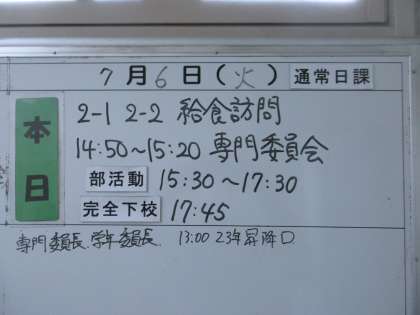 7月6日(火) 通常日課
本日
2-1 2-2 給食訪問
14:50~15:20 専門委員会
部活動 15:30~17:30
完全下校 17:45
専門委員長、学年委員長、 13:00 2,3年昇降口